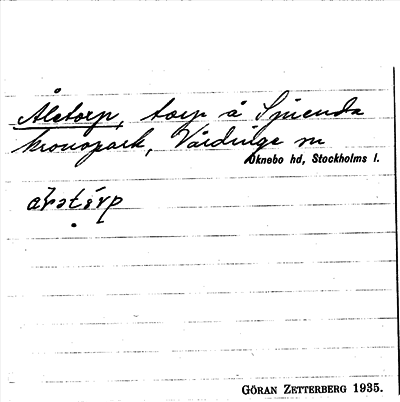 Åletorp, torp å Sjuenda
kronopark, Vårdinge sn
Öknebo hd, Stockholms l.
GÖRAN ZETTERBERG 1935.